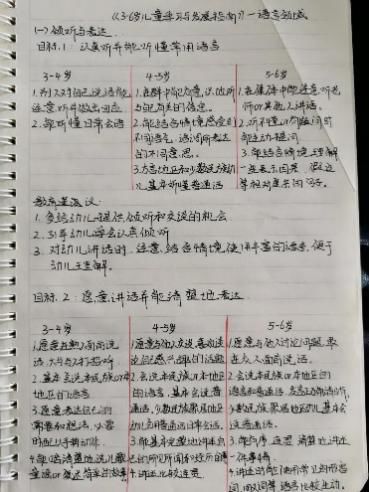 《3-6岁儿童学习与发展指南》—语言领域
(一) 倾听与表达
目标.1: 认真听并能听懂常用语言
3-4岁
1.别人对自己说话能
注意听并做出回应
2.能听懂日常会话
4-5岁
1.在群中能有意识地听
与己有关的信息。
2.能结合情境感受到
不同语气、语调所表达
的不同意思。
3.方言地区和少数民族幼
儿基本听懂普通话
5-6岁
1.在集体中能注意听老
师或其他人讲话。
2.听不懂或有疑问时
能主动提问
3.能结合情境理解
一些表示因果、假设
等相对复杂的句子。
教育建议:
1. 多给幼儿提供倾听和交谈的机会
2. 引导幼儿学会认真倾听
3. 对幼儿讲话时,注意结合情境使用丰富的语言,便于
幼儿理解。
目标.2: 愿意讲话并能清楚地表达
3-4岁
1.愿意在熟人面前说
话,大方与人打招呼
2.基本会说本民族或本
地区的语言
3.愿意表达自己的
需要和想法,必要
时配以手势动作
4-5岁
1.愿意与他人交谈,喜欢谈
论自己感兴趣的话题
2.会说本民族或本地区
的语言,基本会说普
通话。少数民族聚居地区
幼儿会用普通话日常会话。
3.能基本完整地讲述自
己的所见所闻和经历的事
4.讲述比较连贯
5-6岁
1.愿意与他人讨论问题,敢
在众人面前说话。
2.会说本民族或本地区
的语言和普通话,发音正确清晰
少数民族聚居地区幼儿基本会
说普通话。
3.能有序、连贯、清楚地讲述
一件事情。
4.讲述时能使用常见的形容
词、同义词等,语言比较生动